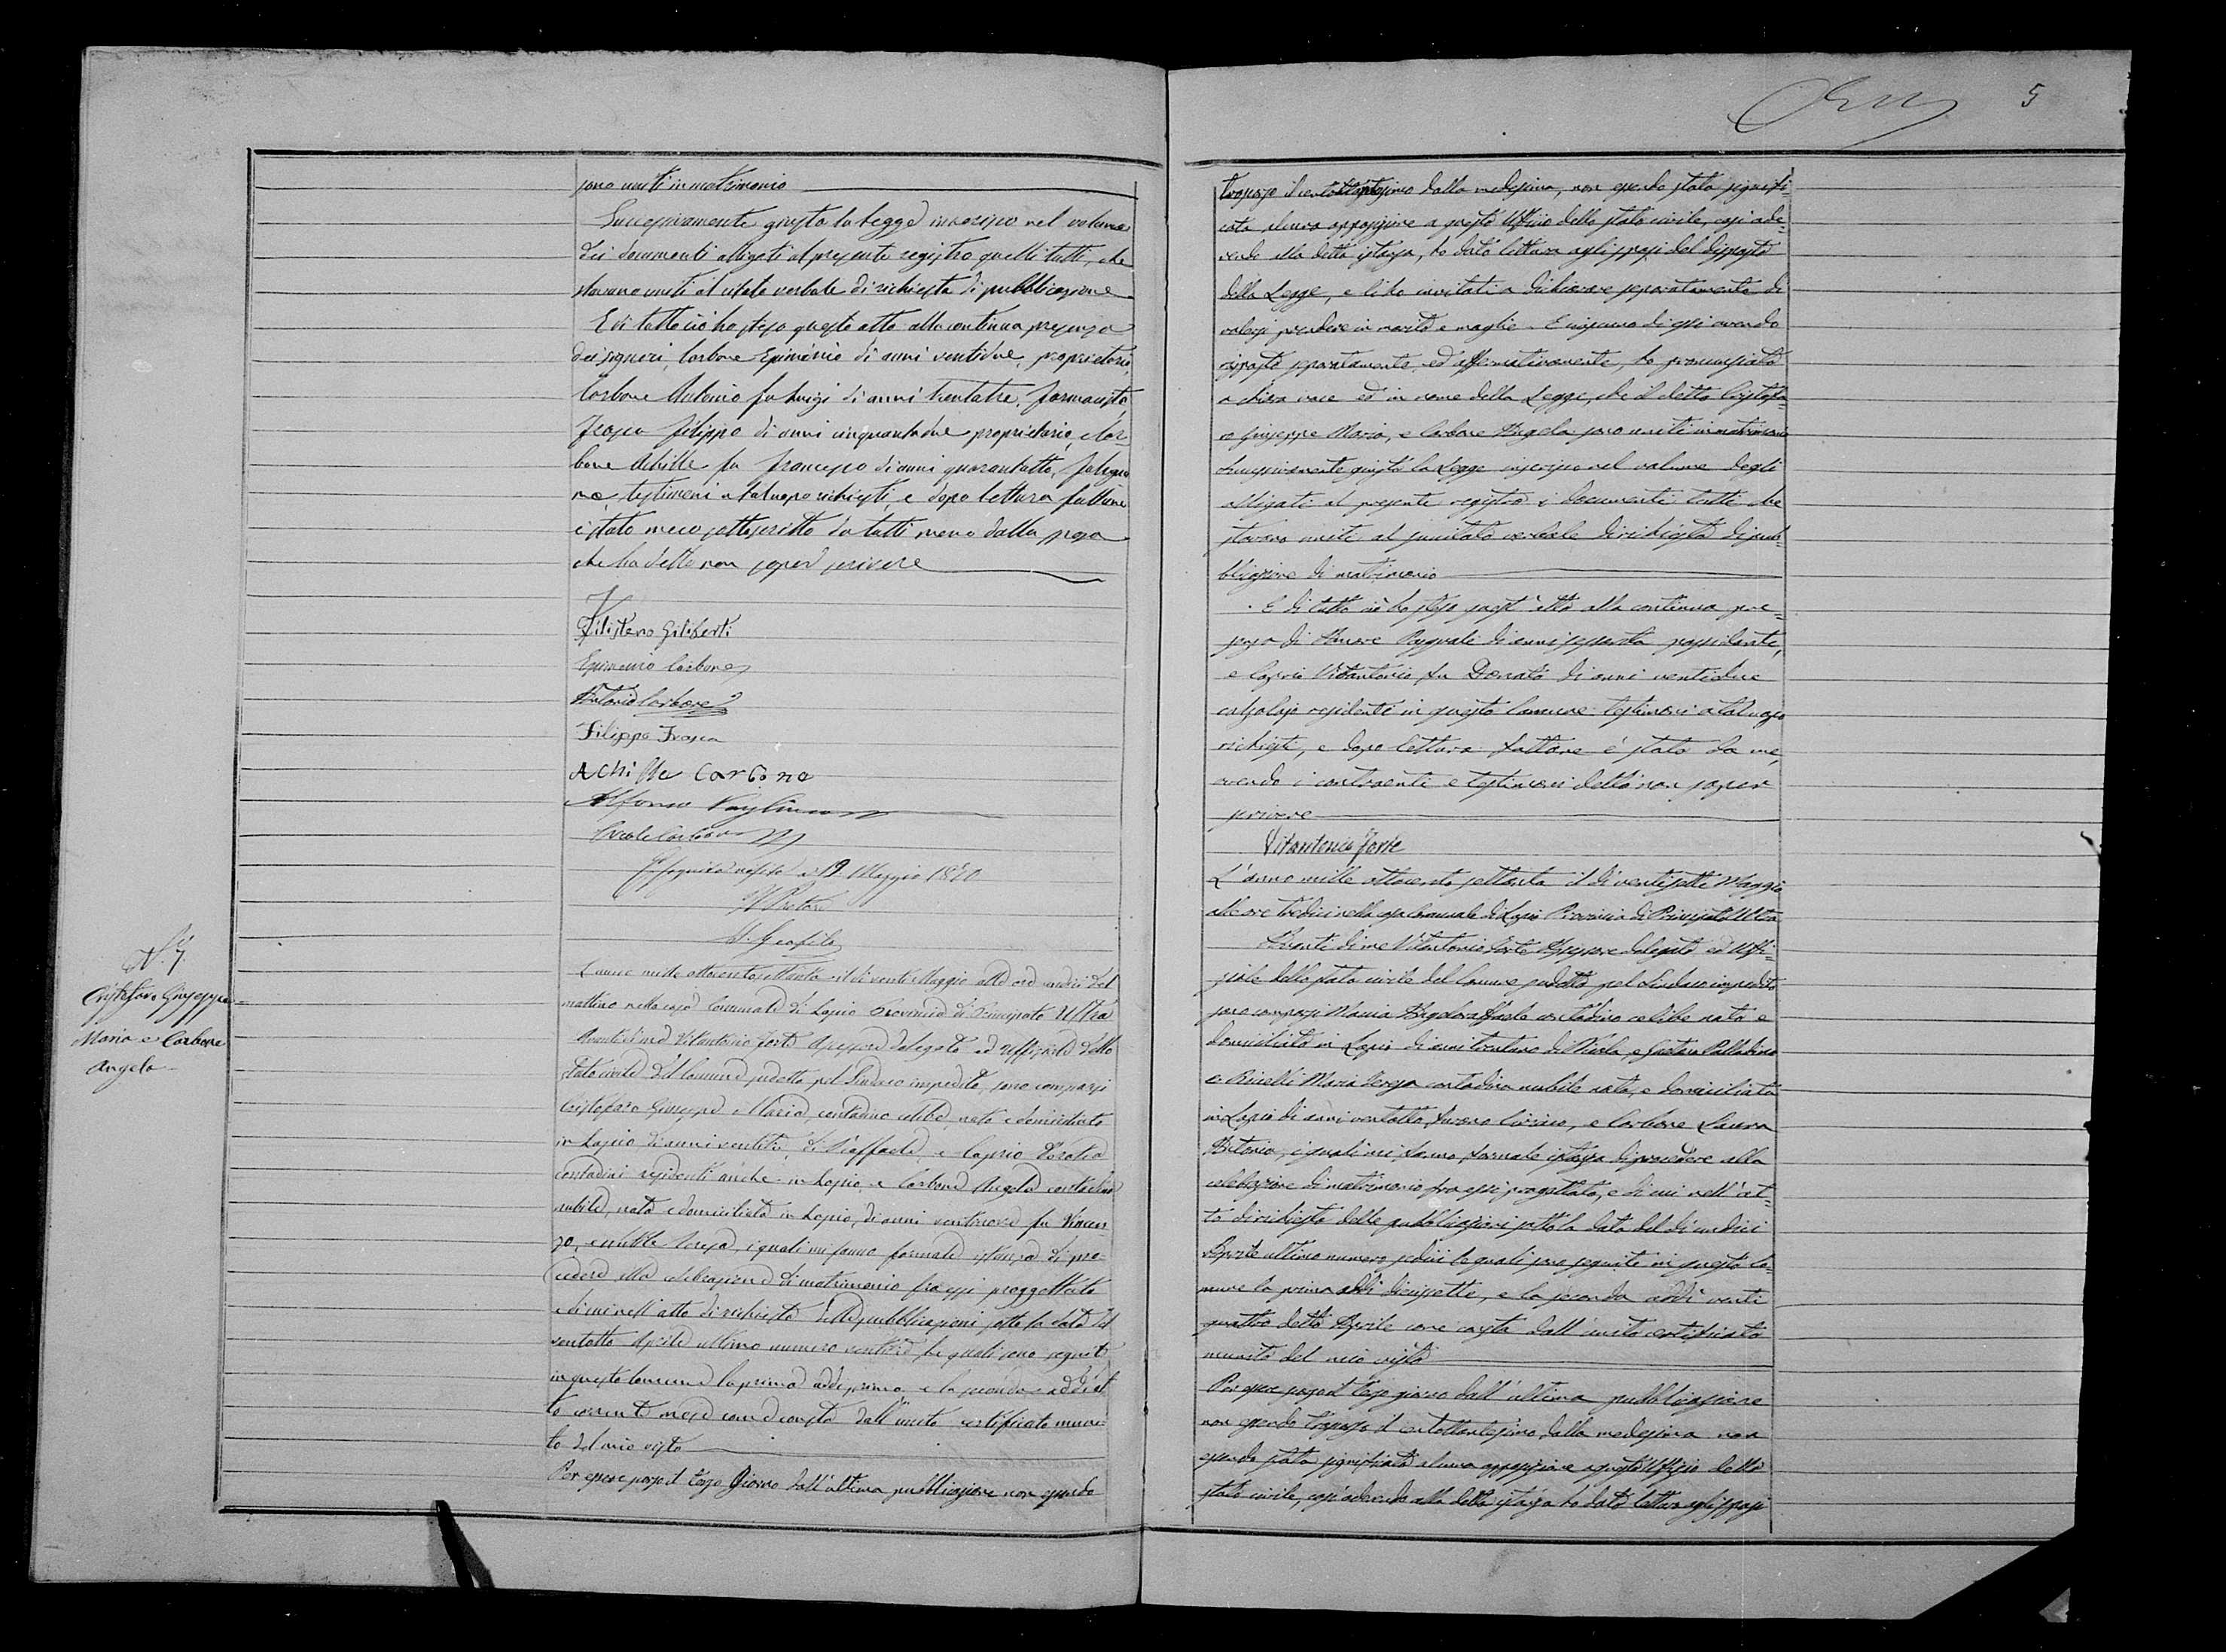 sono uniti in matrimonio
Successivamente giusta la Legge inserisco nel volume
dei documenti alligati al presente registro quelli tutti, che
stavano uniti al citato verbale di richiesta di pubblicazione
E di tutto ciò ho steso questo atto alla continua presenza
dei signori, Carbone Epimenio di anni ventidue, proprietario,
Carbone Antonio fu Luigi di anni trentatre, farmacista,
Frasca Filippo di anni cinquantadue proprietario, e Car
bone Achille fu Francesco di anni quarantotto, falegna
me, testimoni a tal uopo richiesti, e dopo lettura fattane
è stato meco sottoscritto da tutti meno dalla sposa
che ha detto non saper scrivere
Filisteno Giliberti
Epimenio Carbone
Antonio Carbone
Filippo Frasca
Achille Carbone
Alfonso
Carbone
19 Maggio 1870
Il Pretore
N.° 7.
Cristofaro Giuseppe
Maria e Carbone
Angela
L'anno mille ottocento settanta il dì venti Maggio alle ore undici del
mattino nella casa Comunale di Lapio Provincia di Principato Ultra
Avanti di me Vitantonio Forte Assessore delegato ad Uffiziale dello
Stato civile del Comune sudetto pel Sindaco impedito, sono comparsi
Cristofaro Giuseppe Maria, contadino celibe, nato e domiciliato
in Lapio di anni ventitre, di Raffaele, e Caprio
contadini residenti anche in Lapio, e Carbone Angela contadina
nubile, nata e domiciliata in Lapio, di anni ventinove fu Vincen
zo, e Teresa, i quali mi fanno formale istanza di pro
cedere alla celebrazione di matrimonio fra essi proggettato
e di cui nell'atto di richiesta delle pubblicazioni sotto la data del
ventotto Aprile ultimo numero le quali sono seguite
in questo Comune la prima addì primo, e la seconda addì ot
to corrente mese come consta dall'unito certificato muni
to del mio visto
Per essere scorso il terzo Giorno dall'ultima pubblicazione non essendo
5
trascorso il centottantesimo dalla medesima, non essendo stata signifi-
cata alcuna opposizione a questo Uffizio dello stato civile, così ade-
rendo alla detta istanza, ho dato lettura agli sposi del disposto
della Legge, e li ho invitati a dichiarare separatamente di
volersi prendere in marito e moglie. E ciascuno di essi avendo
risposto separatamente, ed affermativamente, ho pronunziato
a chiara voce ed in nome della Legge, che il detto Cristofa-
ro Giuseppe Maria, e Carbone Angela sono uniti in matrimonio
Successivamente giusta la Legge inserisco nel volume degli
alligati al presente registro i documenti tutti che
stavano uniti al sucitato verbale di richiesta di pub-
blicazione di matrimonio
E di tutto ciò ho steso quest'atto alla continua pre-
senza di Pasquale di anni sessanta possidente,
e Caprio Vitantonio fu Donato di anni ventidue
calzolajo residenti in questo Comune testimoni a tal uopo
richiesti, e dopo lettura fattane è stato da me,
avendo i contraenti e testimoni detto non saper
scrivere
Vitantonio Forte
L'anno mille ottocento settanta il dì ventisette Maggio
alle ore tredici nella casa Comunale di Lapio Provincia di Principato Ultra
Avanti di me Vitantonio Forte Assessore delegato ad Uffi-
ziale dello stato civile del Comune sudetto, pel Sindaco impedito
sono comparsi Angeloraffaele contadino celibe nato e
domiciliato in Lapio di anni trentuno di Nicola, e Gaetana Palladino
e Maria Teresa contadina nubile nata, e domiciliata
in Lapio di anni ventotto, e Carbone Laura
i quali mi fanno formale istanza di procedere alla
celebrazione di matrimonio fra essi progettato, e di cui nell'at-
to di richiesta delle pubblicazioni sotto la data del dì undici
Aprile ultimo numero sedici le quali sono seguite in questo Co-
mune la prima addì diciassette, e la seconda addì venti
quattro detto Aprile come consta dall'unito certificato
munito del mio visto
Per essere scorso il terzo giorno dall'ultima pubblicazione
non essendo trascorso il centottantesimo dalla medesima non
essendo stata significata alcuna opposizione a questo Uffizio dello
stato civile, così aderendo alla detta istanza ho dato lettura agli sposi